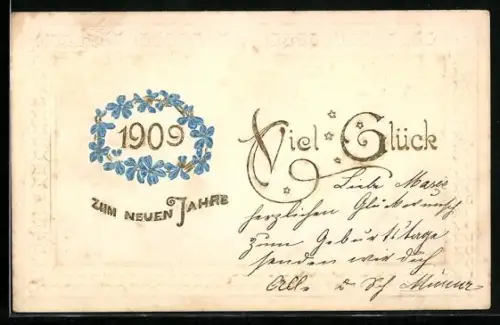 1909
ZUM NEUEN JAHRE
Viel Glück
Liebe Marie
herzlichen Glückwunsch
zum Geburtstage
senden wir dich
All.